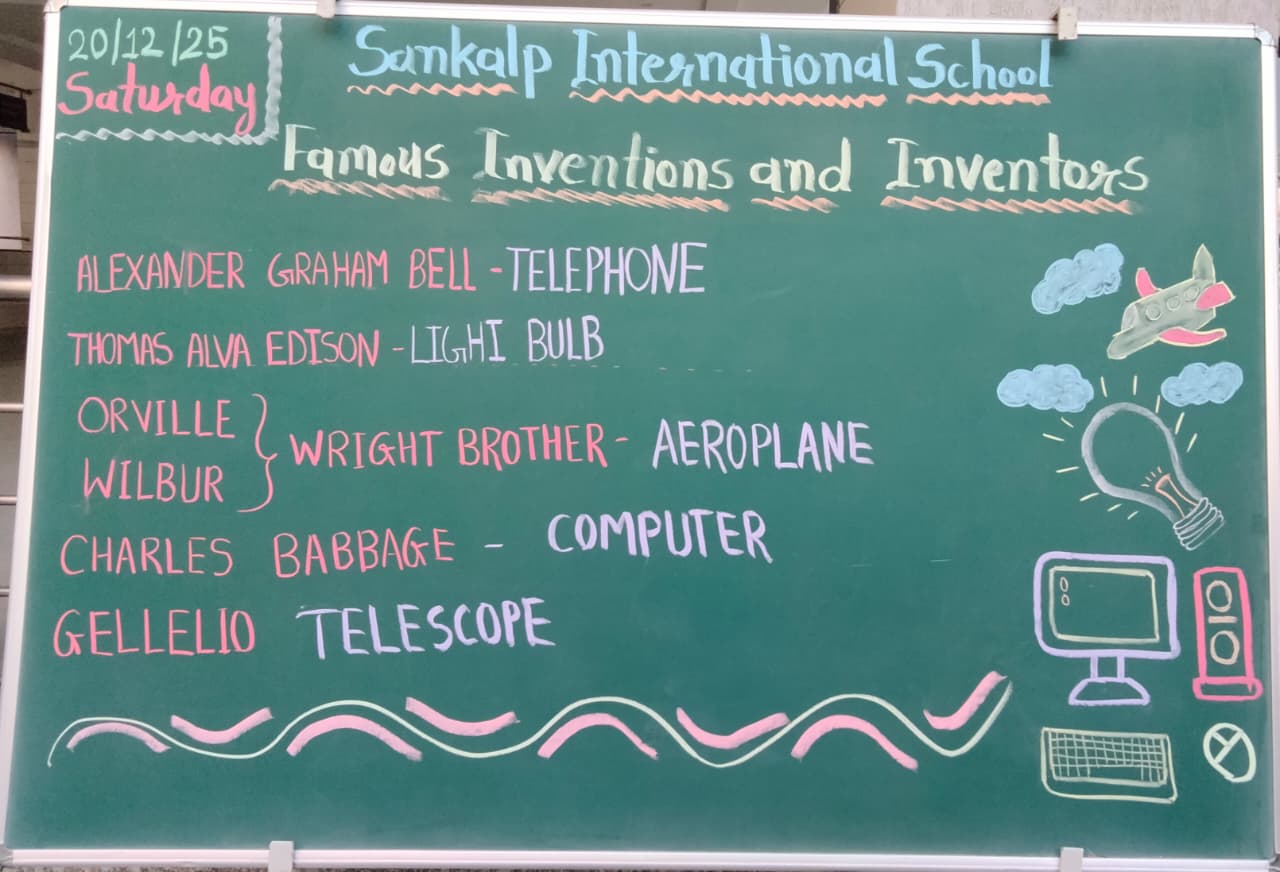 20/12/25
Saturday
Sankalp International School
Famous Inventions and Inventors
ALEXANDER GRAHAM BELL - TELEPHONE
THOMAS ALVA EDISON - LIGHI BULB
ORVILLE
WILBUR } WRIGHT BROTHER - AEROPLANE
CHARLES BABBAGE - COMPUTER
GELLELIO TELESCOPE